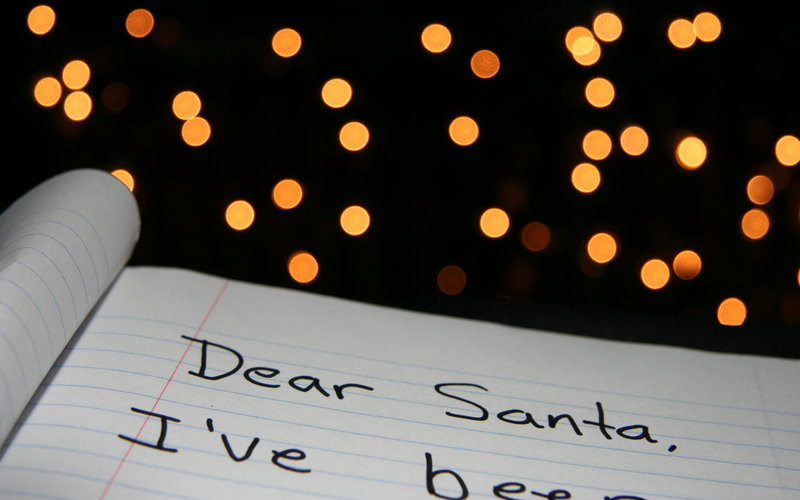 Dear Santa,
I've been